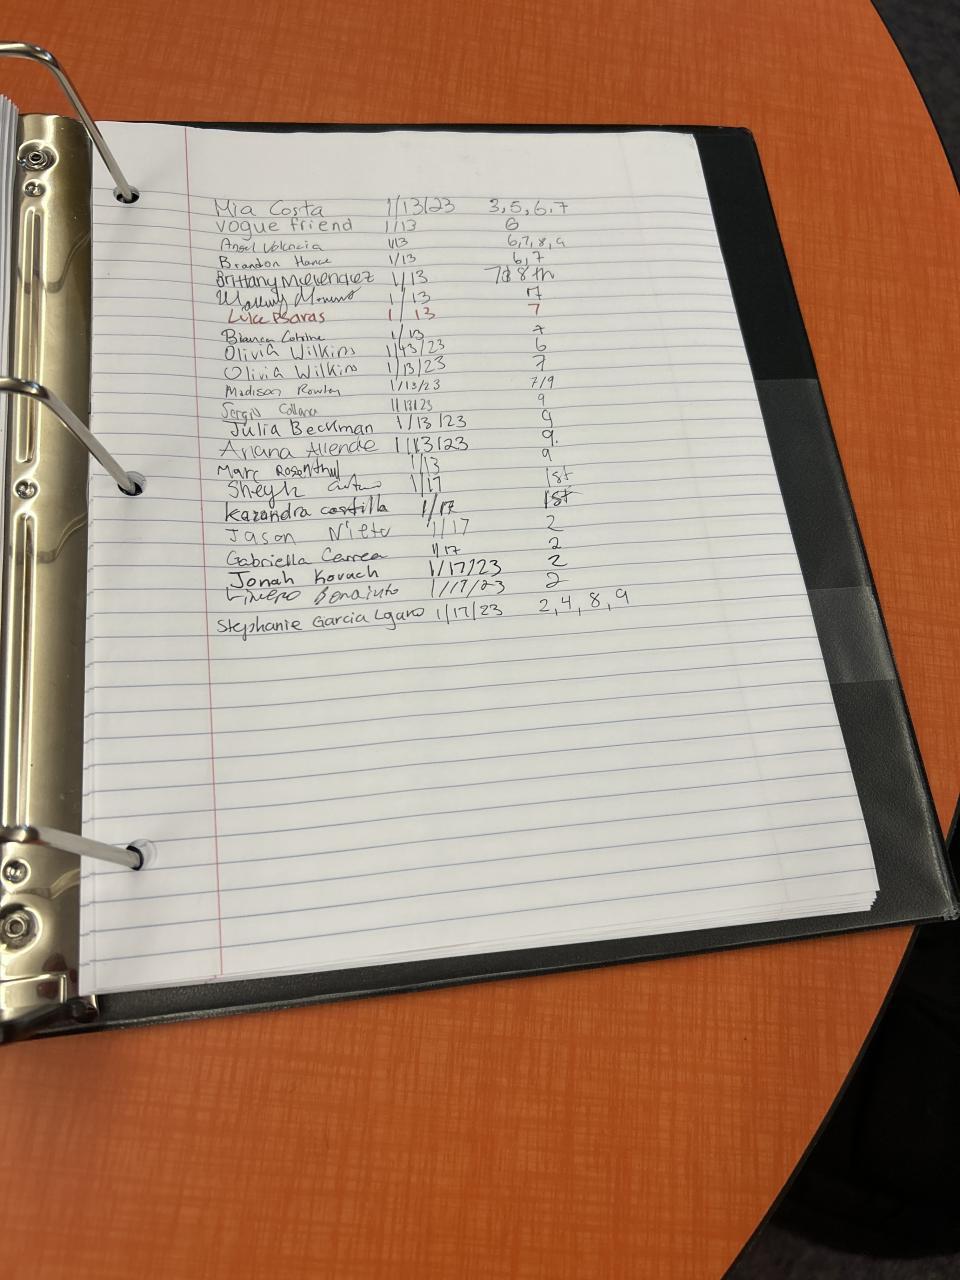 Mia Costa 1/13/23 3, 5, 6, 7
vogue friend 1/13 6
Angel Valencia 1/13 6, 7, 8, 9
Brandon Hance 1/13 6, 7
Brittany 1/13 7 & 8th
1/13 7
Luke Psaras 1/13 7
Bianca 1/13 7
Olivia Wilkins 1/13/23 6
Olivia Wilkins 1/13/23 7
Madison Rowley 1/13/23 7/9
Sergio 1/13/23 9
Julia Beckman 1/13/23 9
Ariana Allende 1/13/23 9.
Marc Rosenthal 1/13 9
1/17 1st
Kazandra costilla 1/17 1st
Jason Nieto 1/17 2
Gabriella Correa 1/17 2
Jonah Kovach 1/17/23 2
1/17/23 2
Stephanie Garcia 1/17/23 2, 4, 8, 9